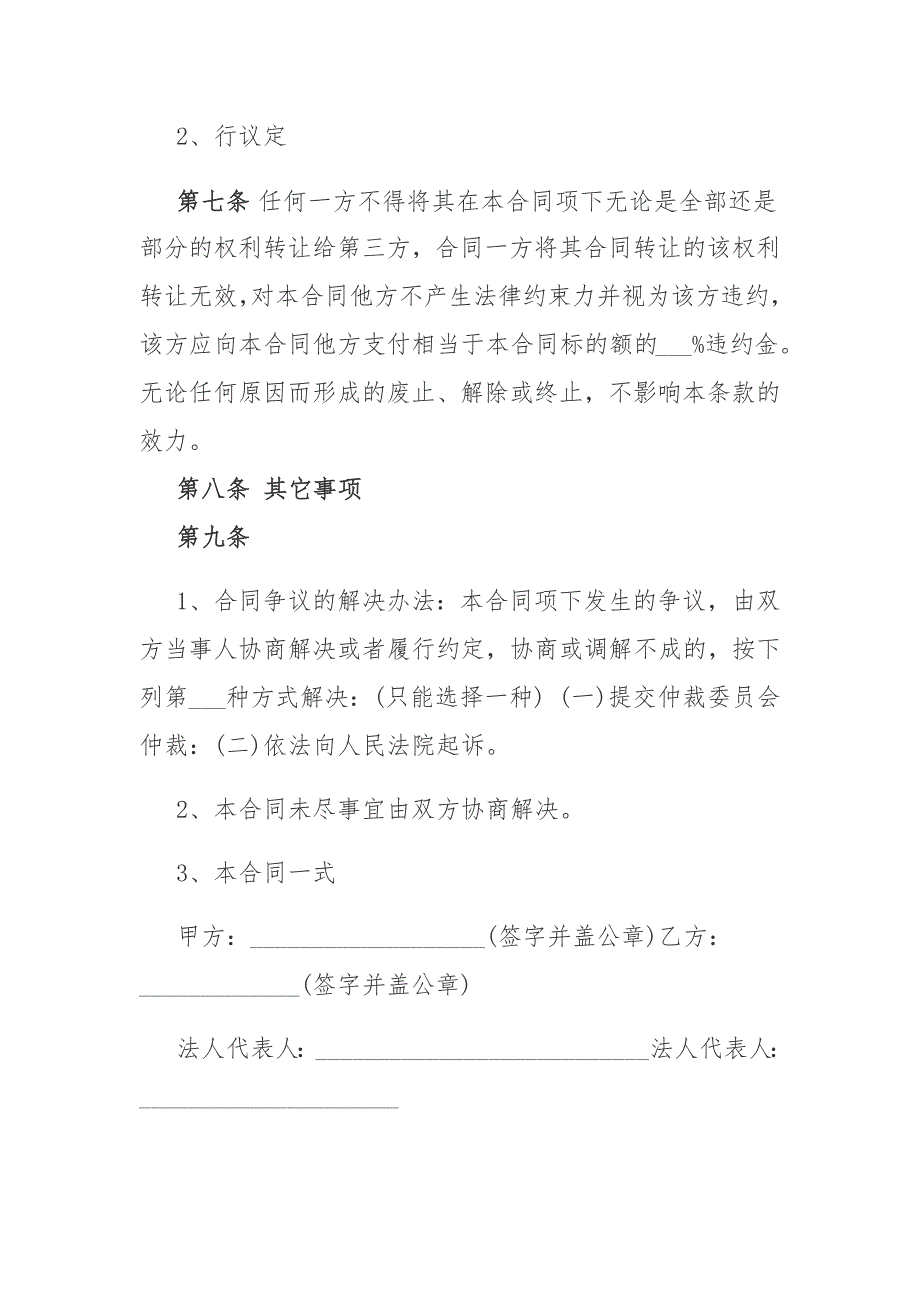 2、行议定
第七条 任何一方不得将其在本合同项下无论是全部还是
部分的权利转让给第三方，合同一方将其合同转让的该权利
转让无效，对本合同他方不产生法律约束力并视为该方违约，
该方应向本合同他方支付相当于本合同标的额的___%违约金。
无论任何原因而形成的废止、解除或终止，不影响本条款的
效力。
第八条 其它事项
第九条
1、合同争议的解决办法：本合同项下发生的争议，由双
方当事人协商解决或者履行约定，协商或调解不成的，按下
列第___种方式解决：(只能选择一种) (一)提交仲裁委员会
仲裁：(二)依法向人民法院起诉。
2、本合同未尽事宜由双方协商解决。
3、本合同一式
甲方：___________________(签字并盖公章)乙方：
_____________(签字并盖公章)
法人代表人：___________________________法人代表人：
_____________________